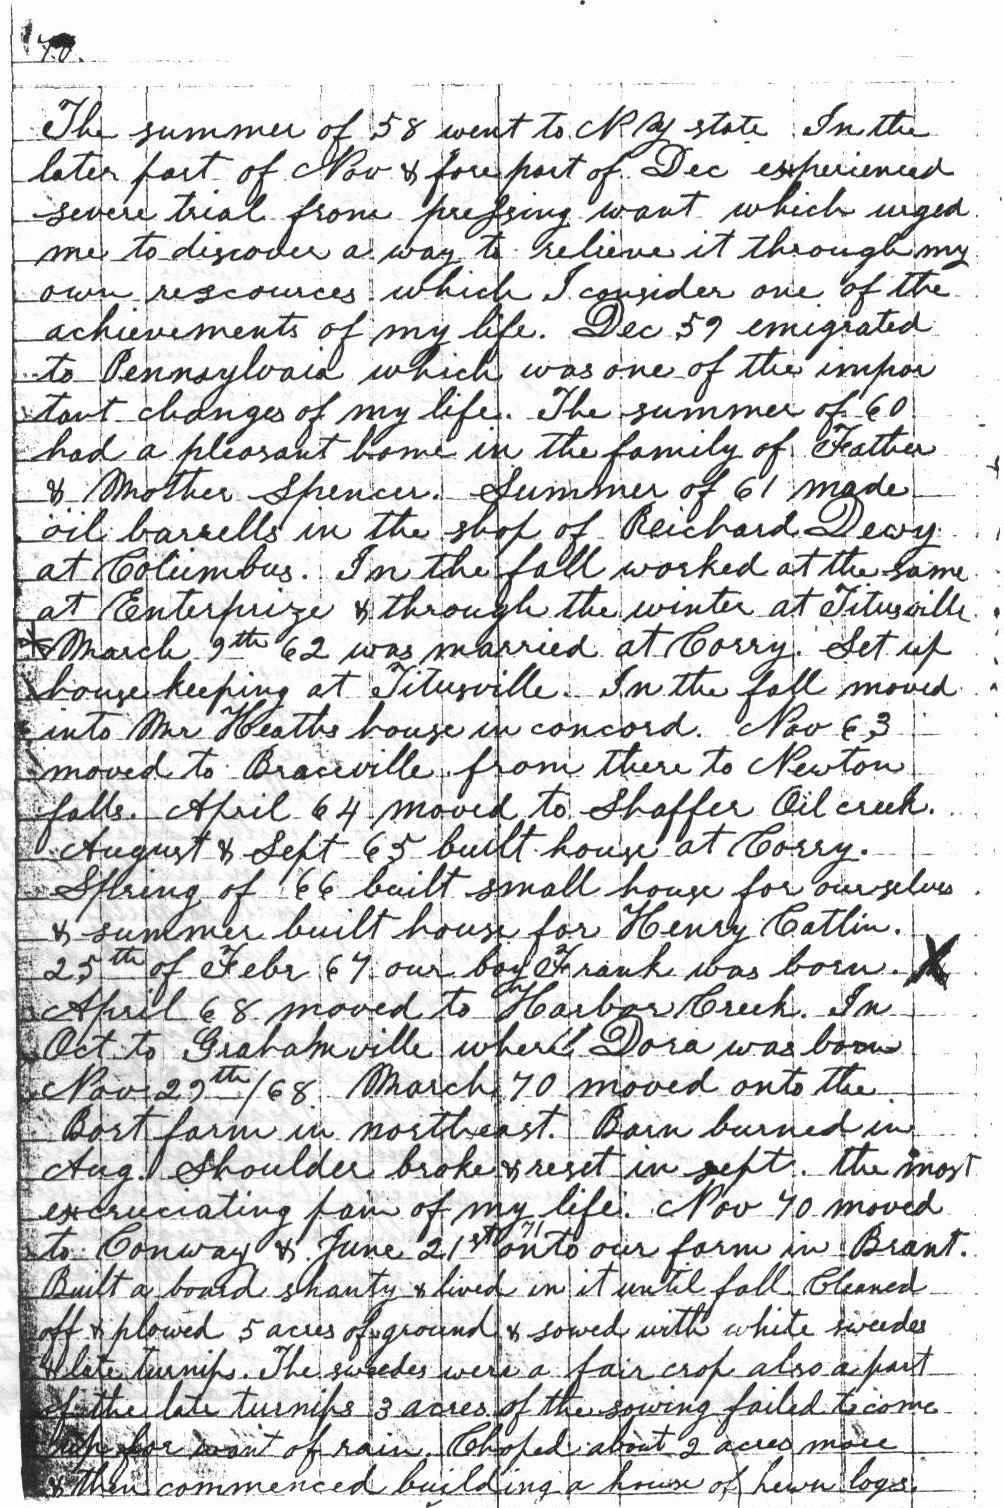 70.
The summer of 58 went to N Y state In the
later part of Nov & fore part of Dec experienced
severe trial from pressing want which urged
me to discover a way to relieve it through my
own rescources which I consider one of the
achievements of my life. Dec 59 emigrated
to Pennsylvaia which was one of the impor
tant changes of my life. The summer of 60
had a pleasant home in the family of Father
& Mother Spencer. Summer of 61 made
oil barrells in the shop of Reichard Dewy
at Columbus. In the fall worked at the same
at Enterprize & through the winter at Titusville
March 9th 62 was married at Corry. Set up
house keeping at Titusville. In the fall moved
into Mr Heaths house in concord. Nov 63
moved to Braceville from there to Newton
falls. April 64 moved to Shaffer Oil creek.
August & Sept 65 built house at Corry.
Spring of 66 built small house for ourselves
& summer built house for Henry Catlin.
25th of Febr 67 our boy Frank was born. X
April 68 moved to Harbor Creek. In
Oct to Grahamville where Dora was born
Nov 29th /68 March 70 moved onto the
Bort farm in northeast. Barn burned in
Aug. Shoulder broke & reset in sept. the most
excruciating pain of my life. Nov 70 moved
to Conway & June 21st 71 onto our farm in Brant.
Built a board shanty & lived in it until fall. Cleaned
off & plowed 5 acres of ground & sowed with white sweedes
& late turnips. The sweedes were a fair crop also a part
of the late turnips 3 acres of the sowing failed to come
up for want of rain. Choped about 2 acres more
& then commenced building a house of hewn logs.